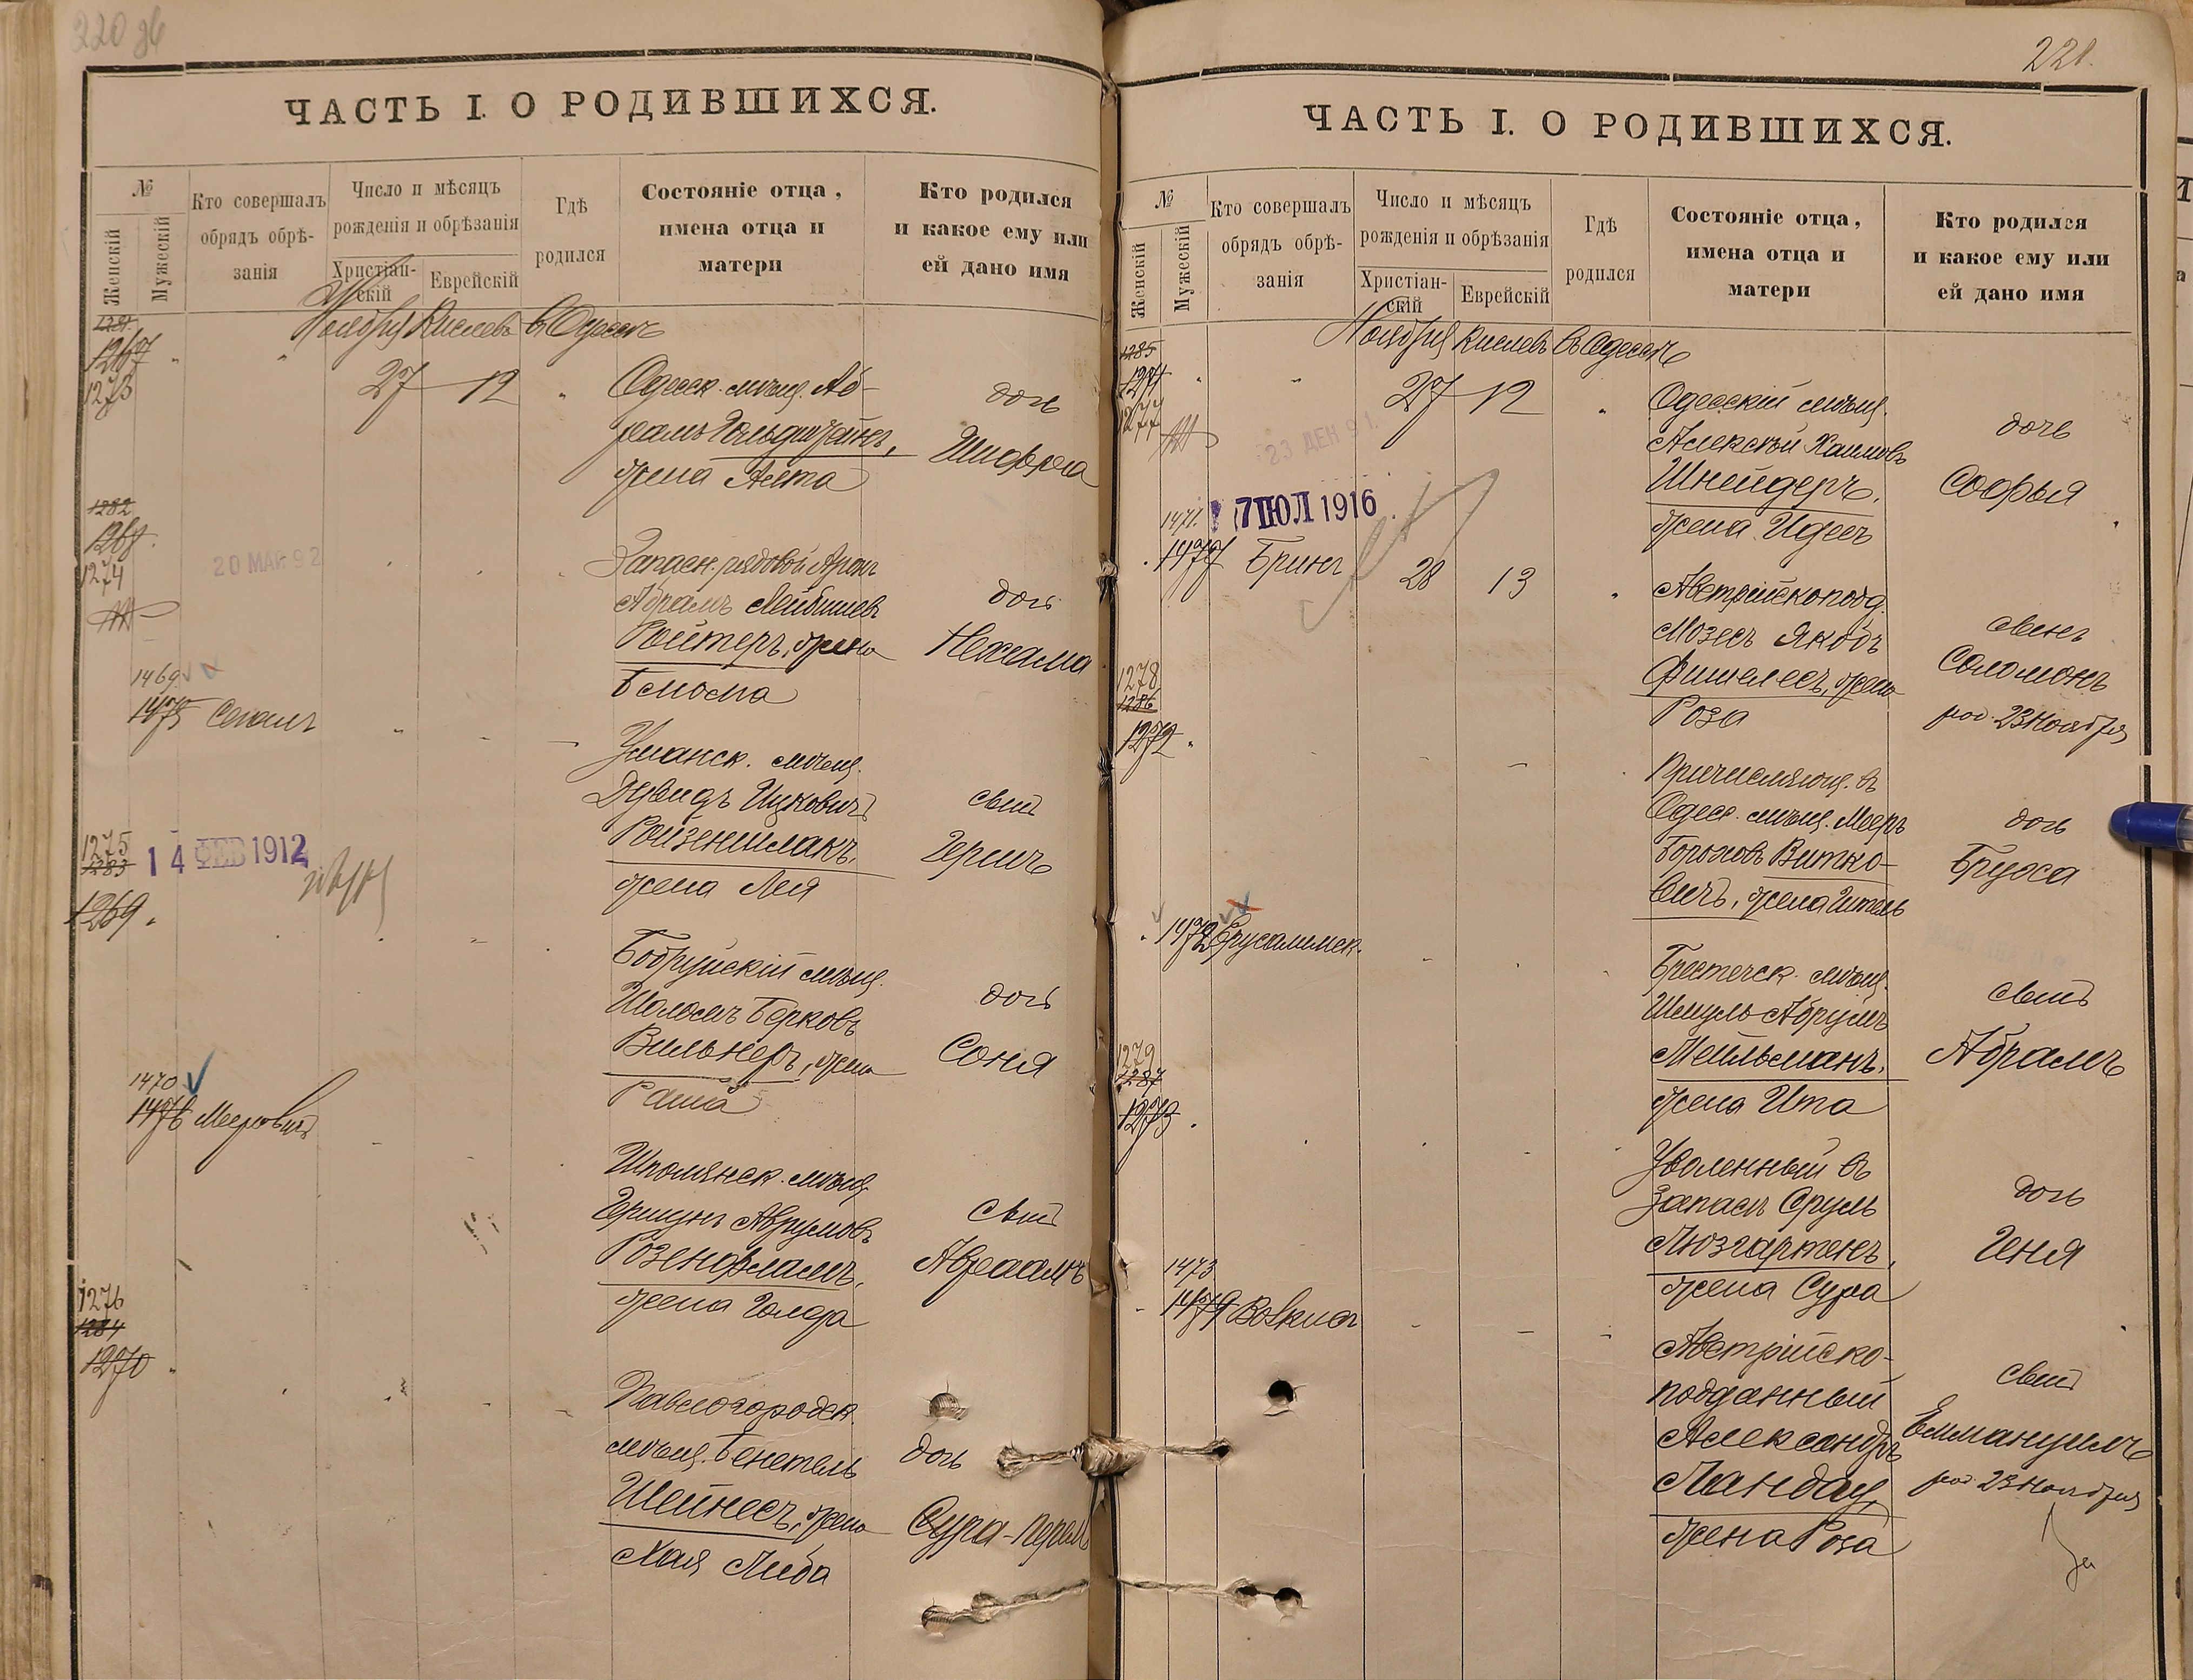 220 об
ЧАСТЬ I. О РОДИВШИХСЯ.
№
Женскій
Мужескій
Кто совершалъ
обрядъ обрѣ-
занія
Число и мѣсяцъ
рожденія и обрѣзанія
Христіан-
скій
Еврейскій
Гдѣ
родился
Состояніе отца,
имена отца и
матери
Кто родился
и какое ему или
ей дано имя
Ноября Кислевъ въ Одессѣ
1281
1267
1273
27 12
Одесск. мѣщ. Аб-
рамъ Гольдштейнъ,
жена Аета
дочь
Шифра
1282
1268
1274
20 МАЯ 92
Запасн. рядовой Аронъ
Абрамъ Лейбишевъ
Ройтеръ, жена
Блюма
дочь
Нехама
1469
1475 Сегалъ
Уманск. мѣщ.
Дувидъ Ицковичъ
Ройзеншлакъ,
жена Лея
сынъ
Гершъ
1275
1283
1269
14 ФЕВ 1912
Бобруйскій мѣщ.
Шоломъ Берковъ
Вильнеръ, жена
Раша
дочь
Соня
1470
1476 Мееровичъ
Шполянск. мѣщ.
Гершунъ Аврумовъ
Розенфламъ,
жена Голда
сынъ
Авраамъ
1276
1284
1270
Павлогородск.
мѣщ. Бенетель
Шейнесъ, жена
Хая Либа
дочь
Сура-Перел
221.
ЧАСТЬ I. О РОДИВШИХСЯ.
№
Женскій
Мужескій
Кто совершалъ
обрядъ обрѣ-
занія
Число и мѣсяцъ
рожденія и обрѣзанія
Христіан-
скій
Еврейскій
Гдѣ
родился
Состояніе отца,
имена отца и
матери
Кто родился
и какое ему или
ей дано имя
Ноября Кислевъ въ Одессѣ
1285
1271
1277
27 12
23 ДЕК 91
Одесскій мѣщ.
Алексѣй Хаимовъ
Шнейдеръ,
жена Идесъ
дочь
Софья
7 ІЮЛ 1916
1471.
1477 Бринъ
28 13
Австрійскопод.
Мозесъ Якобъ
Фишелесъ, жена
Роза
сынъ
Соломонъ
род. 23 Ноября
1278
1286
1272
Причисляющ. въ
Одесск. мѣщ. Мееръ
Бороховъ Витко-
вичъ, жена Гитель
дочь
Бруха
1472
1478 Ерусалимск.
Брестечск. мѣщ.
Шмуль Абрумъ
Мейльманъ,
жена Ита
сынъ
Абрамъ
1279
1287
1273
Уволенный въ
запасъ Сруль
Люзгартенъ,
жена Сура
дочь
Геня
1473
1479 Вовкисъ
Австрійско-
подданный
Александръ
Ландау,
жена Роза
сынъ
Еммануилъ
род. 23 Ноября